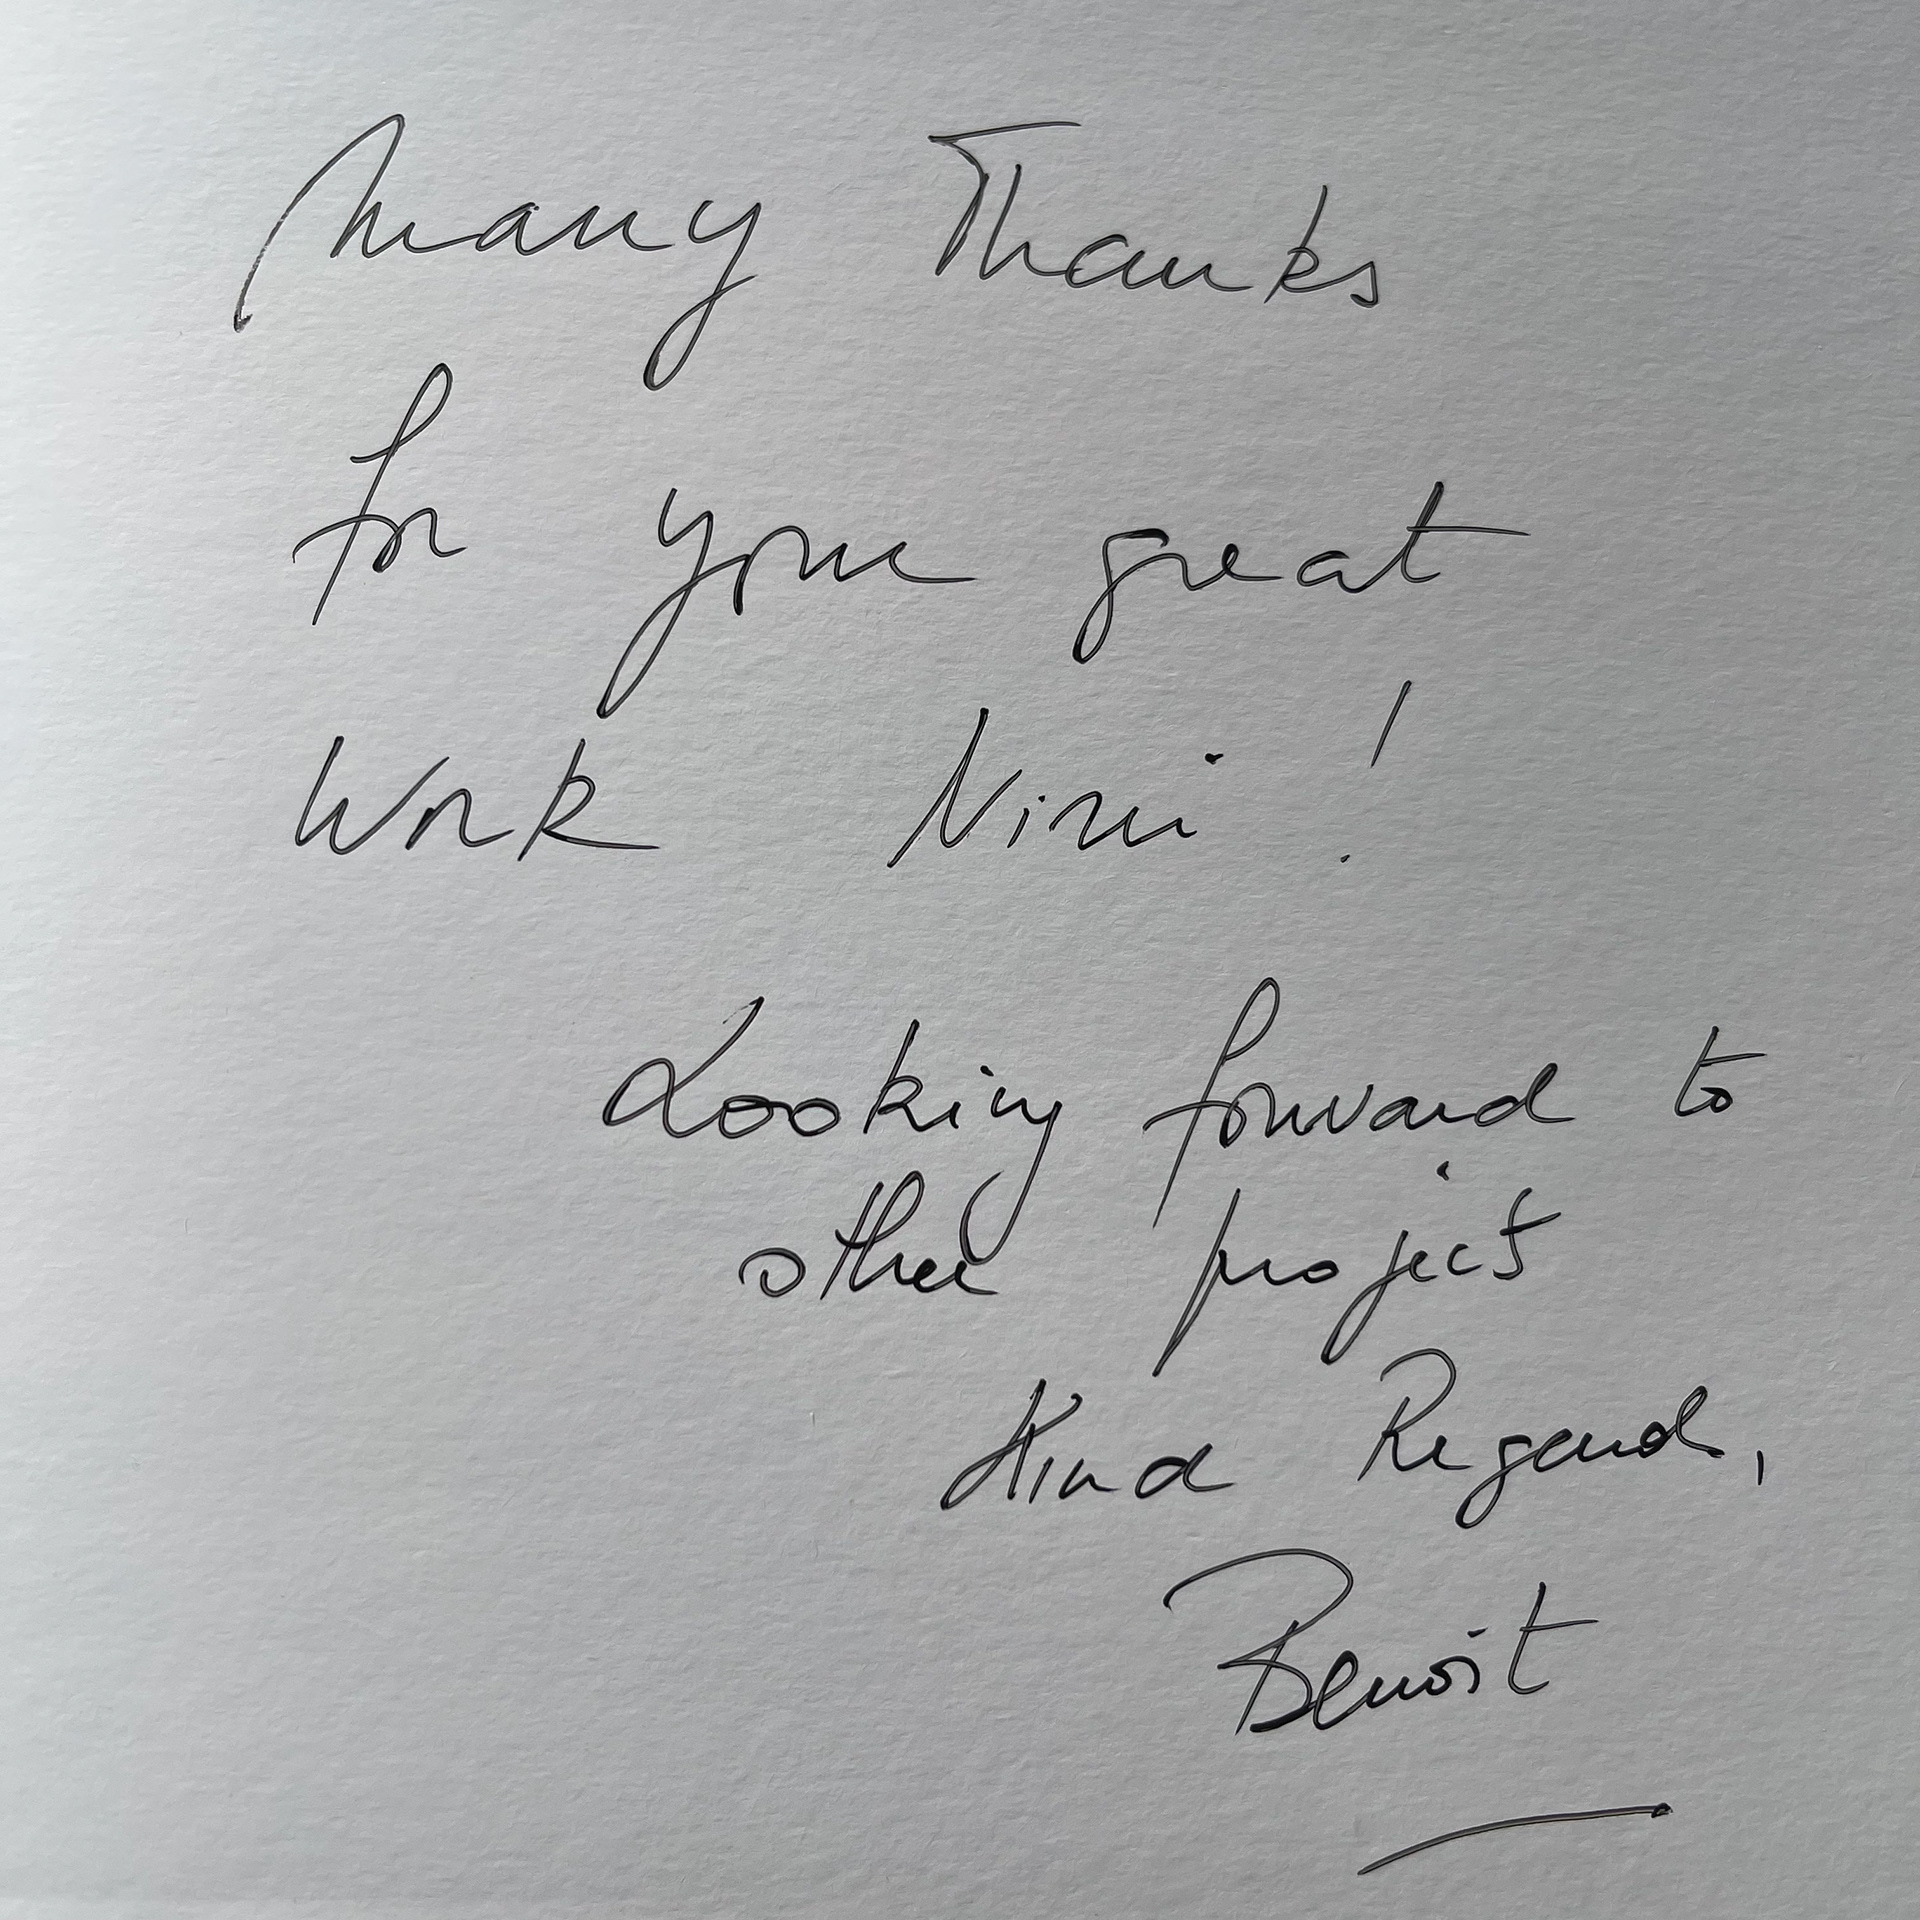 Many Thanks
for your great
Work Nini !
Looking forward to
other project
Kind Regard,
Benoit